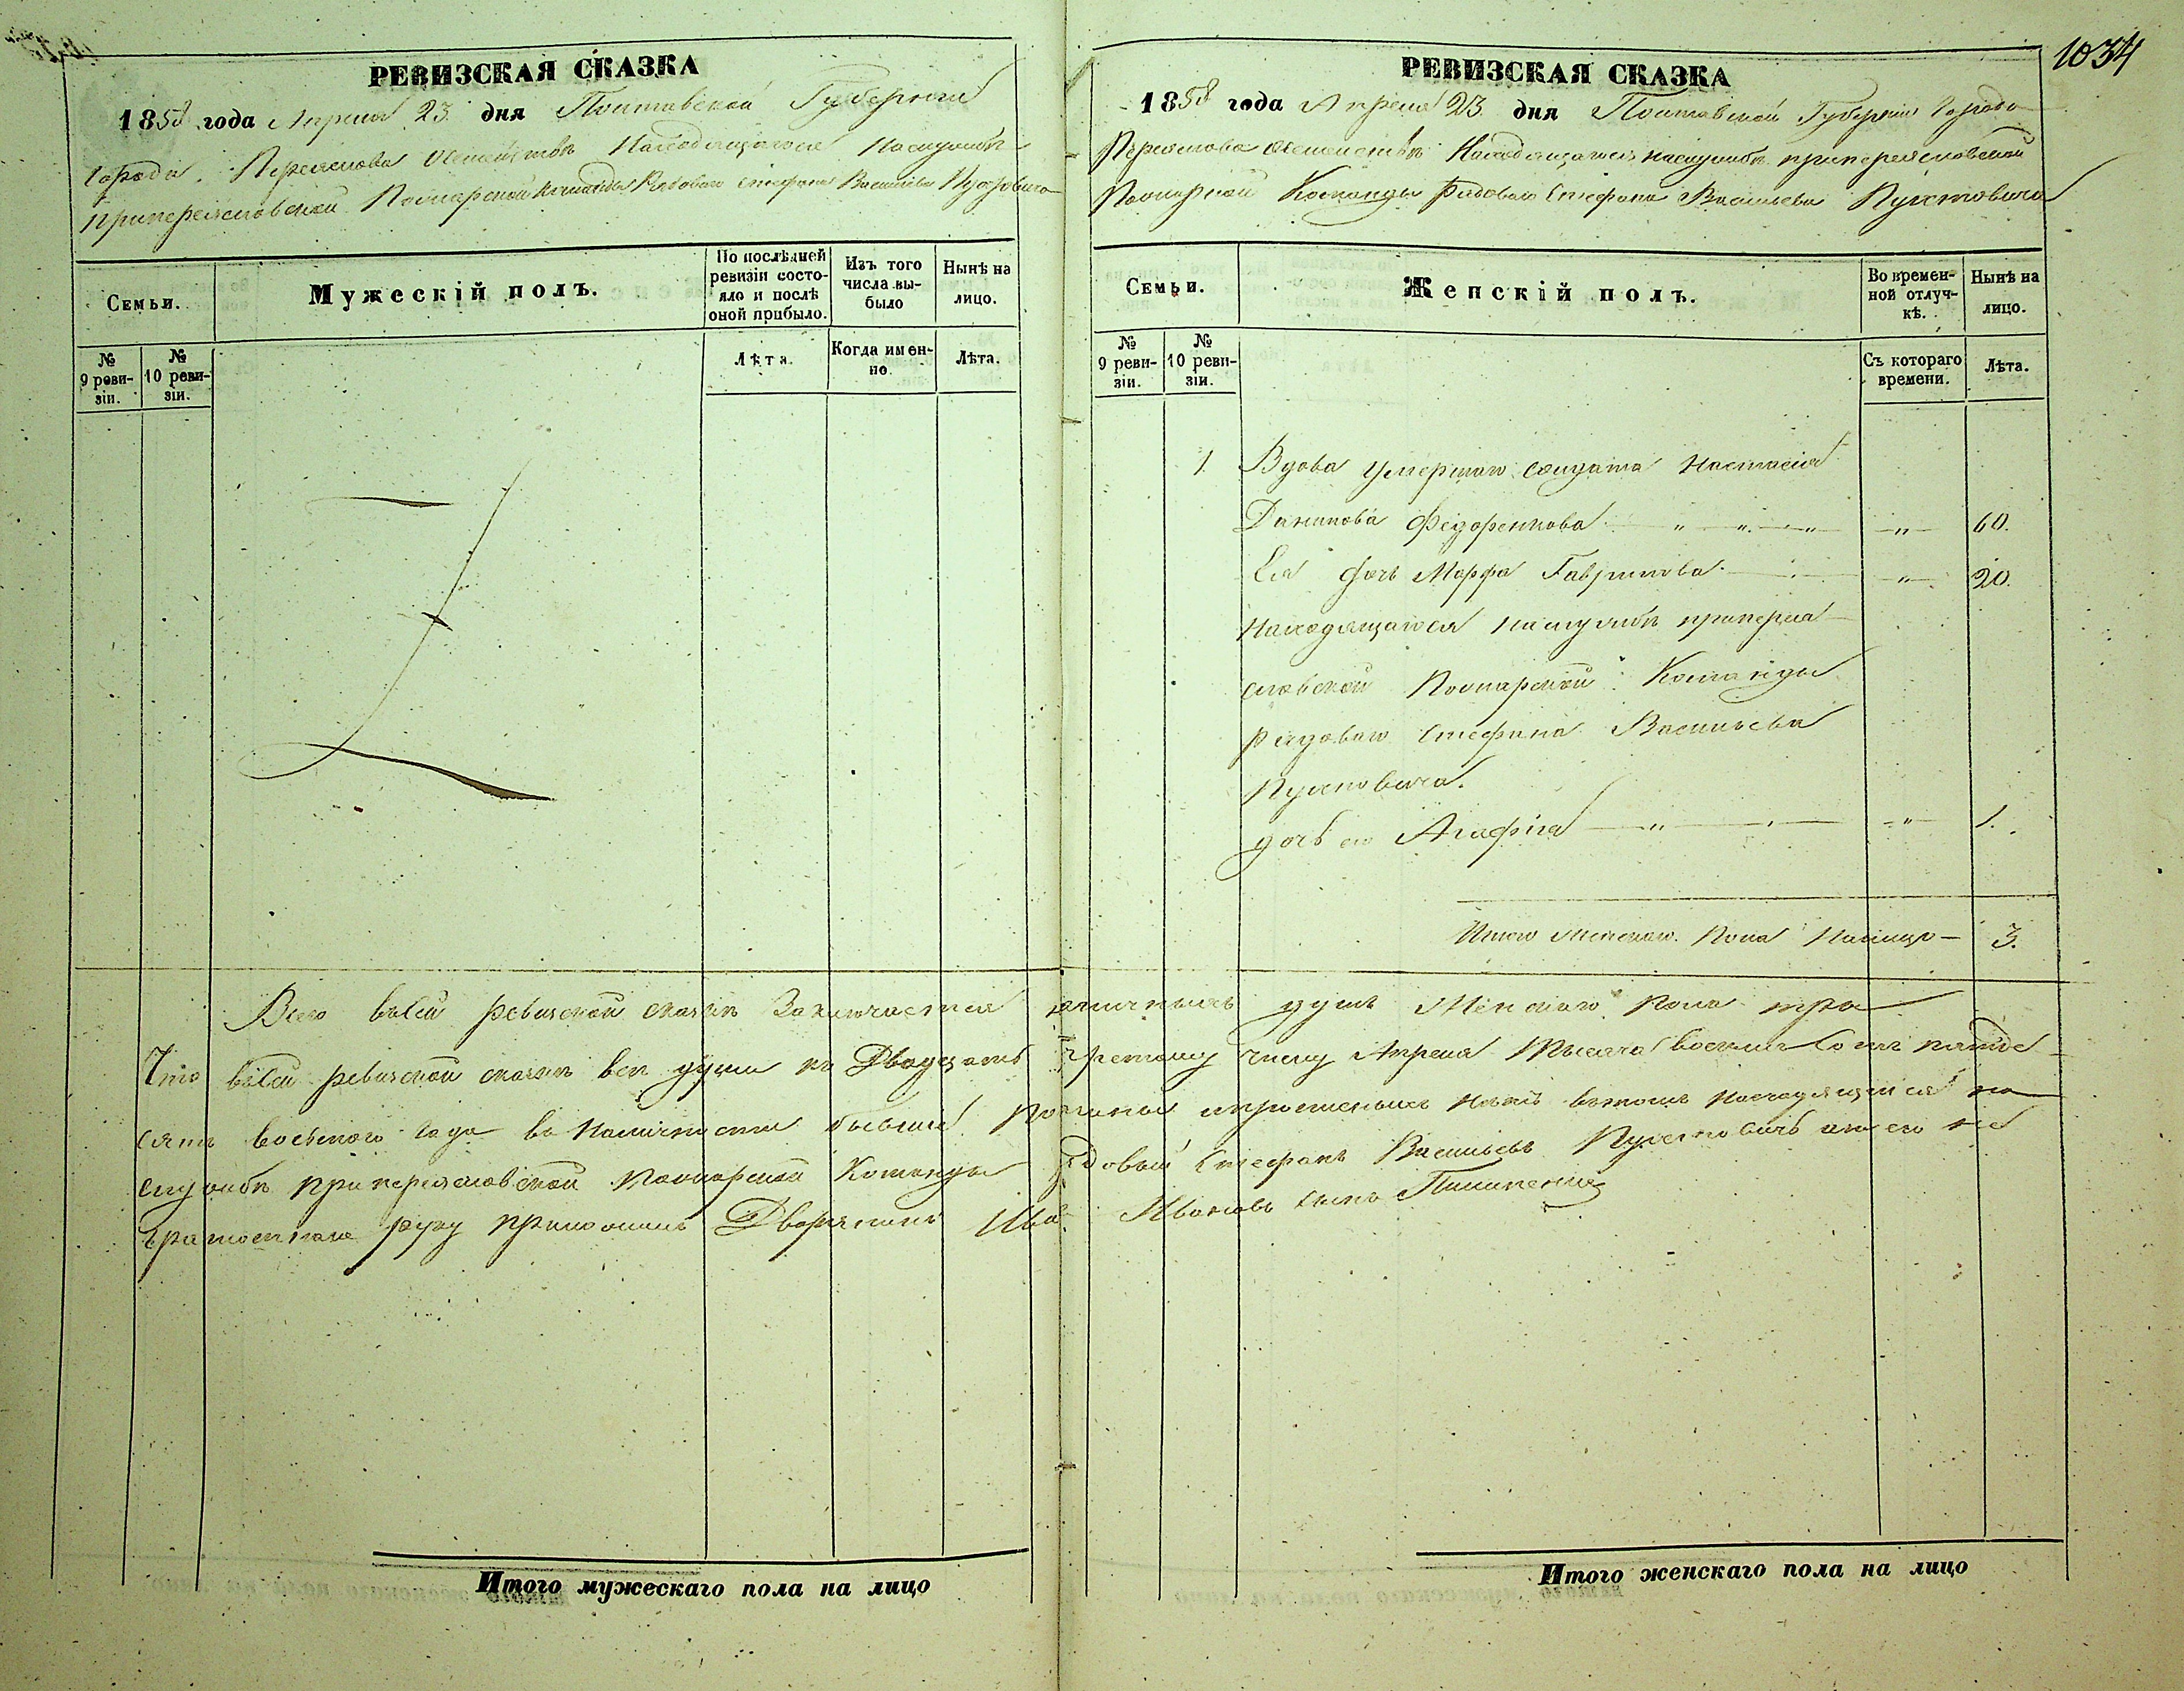 1034
РЕВИЗСКАЯ СКАЗКА
1858 года Апреля 23 дня Полтавской Губернiи
Города Переяслова о семействѣ Находящагося на службѣ
при переясловской Пожарной команды Рядоваго Стефана Васильева
Семьи.
Мужескiй полъ.
По послѣдней
ревизiи состо-
яло и послѣ
оной прибыло.
Изъ того
числа вы-
было
Нынѣ на
лицо.
№
9 реви-
зiи.
№
10 реви-
зiи.
Лѣта.
Когда имен-
но.
Лѣта.
РЕВИЗСКАЯ СКАЗКА
1858 года Апреля 23 дня Полтавской Губернiи Города
Переяслова о семействѣ Находящагося на службѣ при переясловской
Пожарной Команды Рядоваго Стефана Васильева Пустовича
Семьи.
Женскiй полъ.
Во времен-
ной отлуч-
кѣ.
Нынѣ на
лицо.
№
9 реви-
зiи.
№
10 реви-
зiи.
Съ котораго
времени.
Лѣта.
1. Вдова умершаго солдата Настасiя
Данилова Федоренкова — " — " — 60.
Ея дочь Марфа Гаврилова — " — 20.
Находящагося на службѣ при перея-
словской Пожарной Команды
рядоваго Стефана Васильева
Пустовича.
дочь его Агафiя — " — " — 1.
Итого женскаго пола на лицо — 3.
Всего въ сей ревизской сказкѣ Заключается наличныхъ душъ Женскаго пола три
Что въ сей ревизской сказкѣ все души къ Двадцать третьему числу Апреля Тысяча восемь Сотъ пятде-
сятъ восьмого года въ Наличности бывшiе показаны и прописныхъ нѣтъ въ томъ находящiйся на
службѣ при переясловской пожарной Команды рядовый Стефанъ Васильевъ Пустовичъ а за его не
грамотнаго руку приложилъ Дворянинъ Ивановъ сынъ
Итого мужескаго пола на лицо
Итого женскаго пола на лицо